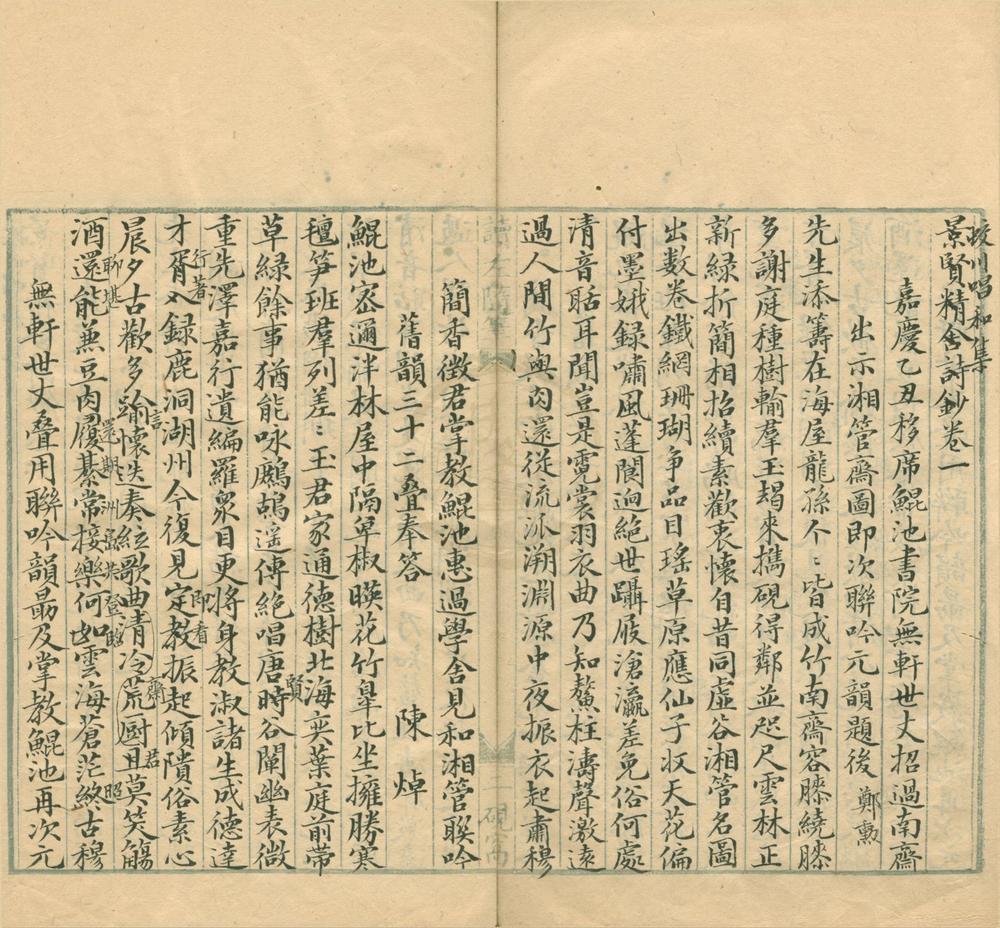 蛟川唱和集
景賢精舍詩鈔卷一
嘉慶乙丑移席鯤池書院無軒世丈招過南齋
出示湘管齋圖即次聯吟元韻題後 鄭勲
先生添籌在海屋龍孫个﹕皆成竹南齋容膝繞膝
多謝庭種樹輸羣玉朅來擕硯得鄰並咫尺雲林正
新緑折簡相招續素歡衷懷自昔同虛谷湘管名圖
出數卷鐵網珊瑚争品目瑤草原應仙子收天花偏
付墨娥録嘯風蓬閬逈絶世躡屐滄瀛差免俗何處
清音聒耳聞豈是霓裳羽衣曲乃知鰲柱濤聲激遠
過人間竹與肉還從流派溯淵源中夜振衣起肅穆
簡香徵君掌教鯤池惠過學舍見和湘管聮吟
舊韻三十二叠奉答 陳焯
鯤池宻邇泮林屋中隔皐椒暎花竹臯比坐擁勝寒
氊笋班羣列差﹕玉君家通德樹北海奕葉庭前帶
草緑餘事猶能咏鷓鴣遥傳絶唱唐時谷闡幽表微
賢
重先澤嘉行遺編羅衆目更將身教淑諸生成德達
才胥入録鹿洞湖州今復見定教振起傾隤俗素心
行著
即看
晨夕古歡多踰懷迭奏絃歌曲清冷荒厨且莫笑觴
言
齋
君
酒還能兼豆肉履綦常接樂何如雲海蒼茫終古穆
聊堪
還期
洲島共登臨
照
無軒世丈叠用聯吟韻最及掌教鯤池再次元
硯寓